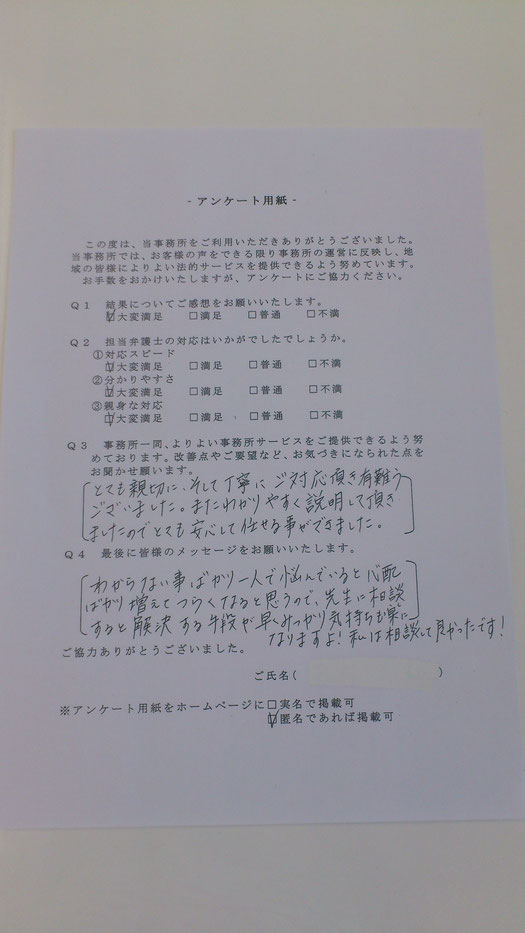 - アンケート用紙 -
この度は、当事務所をご利用いただきありがとうございました。
当事務所では、お客様の声をできる限り事務所の運営に反映し、地
域の皆様によりよい法的サービスを提供できるよう努めています。
お手数をおかけいたしますが、アンケートにご協力ください。
Q1 結果についてご感想をお願いいたします。
☑大変満足 □満足 □普通 □不満
Q2 担当弁護士の対応はいかがでしたでしょうか。
①対応スピード
☑大変満足 □満足 □普通 □不満
②分かりやすさ
☑大変満足 □満足 □普通 □不満
③親身な対応
☑大変満足 □満足 □普通 □不満
Q3 事務所一同、よりよい事務所サービスをご提供できるよう努
めております。改善点やご要望など、お気づきになられた点を
お聞かせ願います。
とても親切に、そして丁寧にご対応頂き有難う
ございました。またわかりやすく説明して頂き
ましたのでとても安心して任せる事ができました。
Q4 最後に皆様のメッセージをお願いいたします。
わからない事ばかり一人で悩んでいると心配
ばかり増えてつらくなると思うので、先生に相談
すると解決する手段が早くみつかり気持ちも楽に
なりますよ!私は相談して良かったです!
ご協力ありがとうございました。
ご氏名( )
※アンケート用紙をホームページに□実名で掲載可
☑匿名であれば掲載可